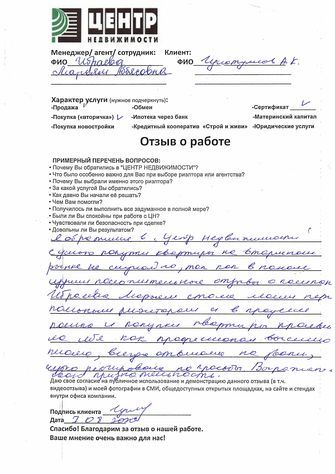 ЦЕНТР
НЕДВИЖИМОСТИ
Менеджер/ агент/ сотрудник: Клиент:
ФИО Ибраева ФИО
Марьям
Характер услуги (нужное подчеркнуть):
-Продажа -Обмен -Сертификат
-Покупка «вторичка» -Ипотека через банк -Материнский капитал
-Покупка новостройки -Кредитный кооператив «Строй и живи» -Юридические услуги
Отзыв о работе
ПРИМЕРНЫЙ ПЕРЕЧЕНЬ ВОПРОСОВ:
• Почему Вы обратились в "ЦЕНТР НЕДВИЖИМОСТИ"?
• Что было особенно важно для Вас при выборе риэлтора или агентства?
• Почему Вы выбрали именно этого риэлтора?
• За какой услугой Вы обратились?
• Как давно Вы начали её решать?
• Чем Вам помогли?
• Получилось ли выполнить все задуманное в полной мере?
• Были ли Вы спокойны при работе с ЦН?
• Чувствовали ли безопасность при сделке?
• Довольны ли Вы результатом?
Я обратился в Центр недвижимости
с целью покупки квартиры на вторичном
рынке не случайно, так как в полном
положительные отзывы о компании
Ибраева Марьям стала моим
риэлтором и в процессе
поиска и покупки квартиры
себя как профессионал высокого
класса, всегда отвечала на звонки,
реагировала на просьбы. Выражаю
свою признательность.
Даю свое согласие на публичное использование и демонстрацию данного отзыва (в т.ч.
и моей фотографии в СМИ, общедоступных открытых площадках, на сайте и стендах
внутри офиса компании.
Подпись клиента
Дата
Спасибо! Благодарим за отзыв о нашей работе.
Ваше мнение очень важно для нас!